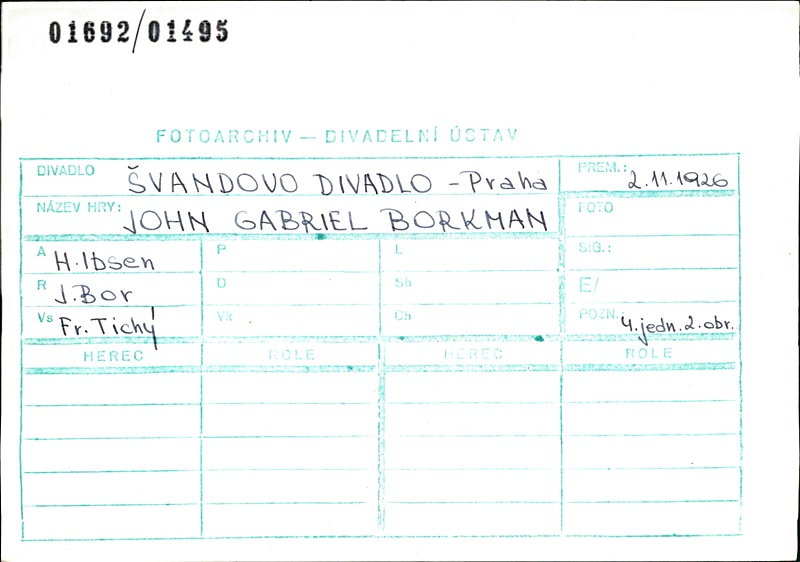 01692/01495
FOTOARCHIV — DIVADELNÍ ÚSTAV
DIVADLO ŠVANDOVO DIVADLO - Praha PREM.: 2.11.1926
NÁZEV HRY: JOHN GABRIEL BORKMAN FOTO
A H. Ibsen P L SIG.:
R J. Bor D Sh E/
Vs Fr. Tichý Vk Ch POZN. 4. jedn. 2. obr.
HEREC ROLE HEREC ROLE